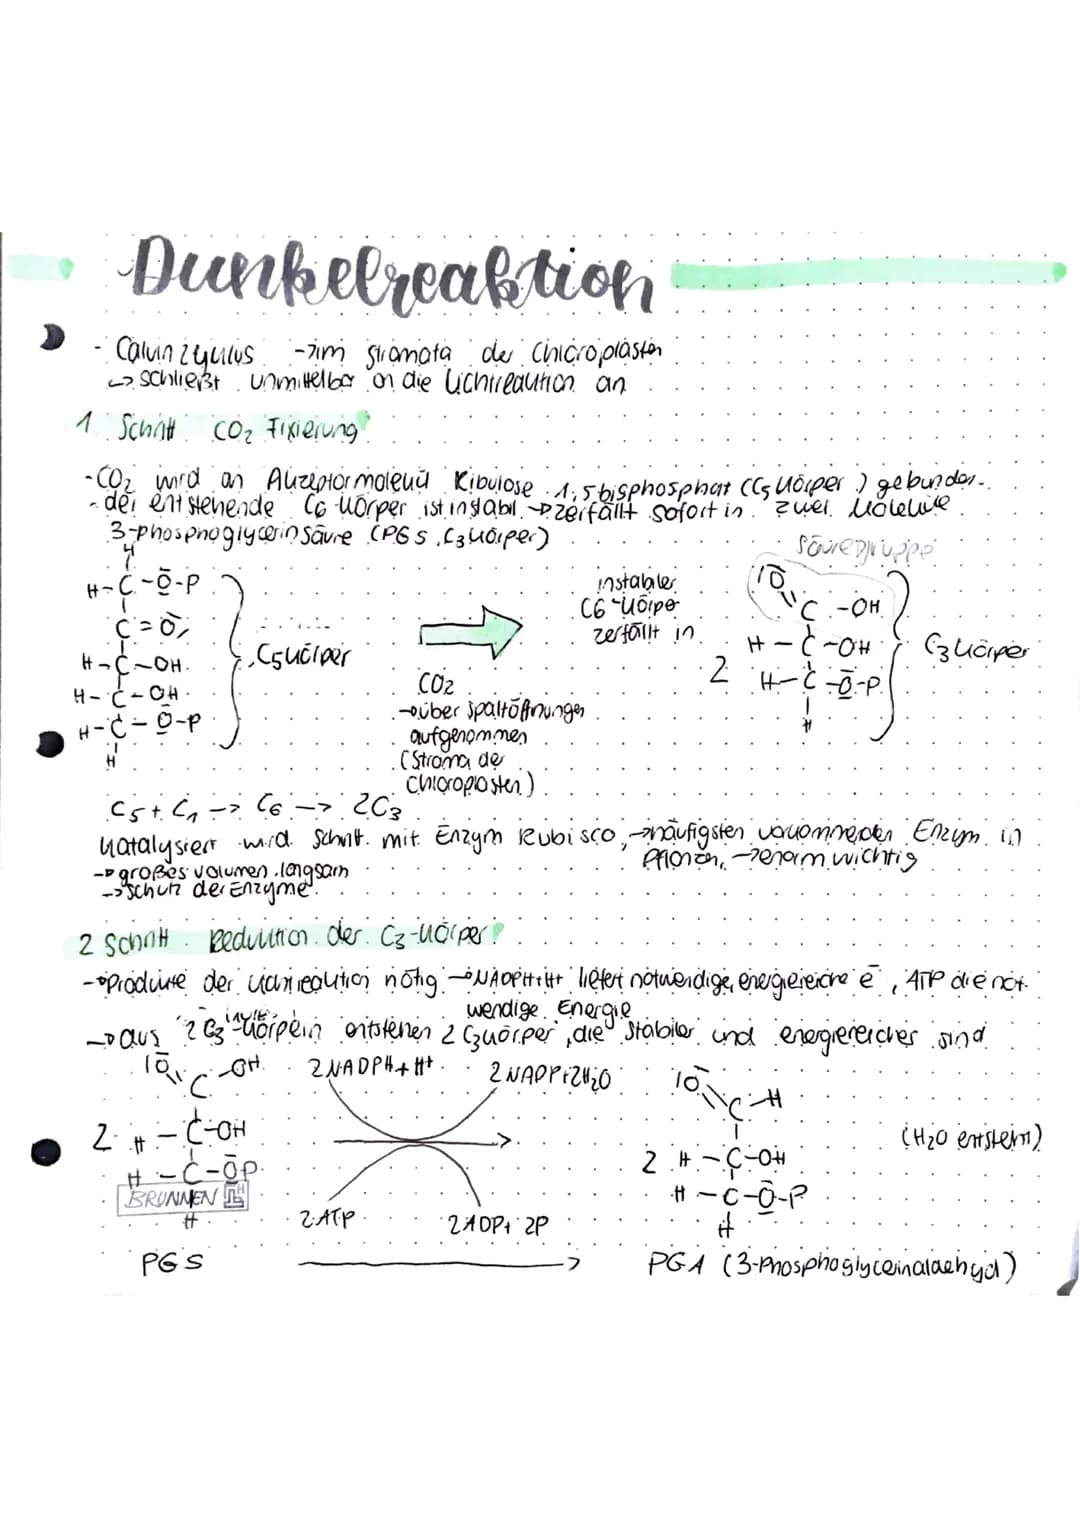 Dunkelreaktion
- Calvinzyklus → im Stromata der Chloroplasten
↳ schließt unmittelbar an die Lichtreaktion an
1 Schritt CO₂ Fixierung
- CO₂ wird an Akzeptormolekül Ribulose 1,5 bisphosphat (C5 Körper) gebunden.
- der entstehende C6-Körper ist instabil → zerfällt sofort in zwei Moleküle
3-phosphoglycerinsäure (PGS, C3 Körper)
Säuregruppe
H
H-C-O-P
C=O
H-C-OH
H-C-OH
H-C-O-P
H
C5 Körper
CO2
→ über Spaltöffnungen
aufgenommen
(Stroma der
Chloroplasten)
instabiler
C6-Körper
zerfällt in
2
O
C-OH
H-C-OH
H-C-O-P
H
C3 Körper
C5 + C1 -> C6 -> 2C3
Katalysiert wird Schritt mit Enzym Rubisco, → häufigsten vorkommenden Enzym in
Pflanzen, → enorm wichtig
→ großes Volumen langsam
→ Schutz der Enzyme
2 Schritt Reduktion der C3-Körper
→ Produkte der Lichtreaktion nötig → NADPH+H+ liefert notwendige, energiereiche e⁻, ATP die not-
wendige Energie
→ aus 2 C3-Körpern entstehen 2 C3 Körper, die stabiler und energiereicher sind
2
O
C-OH
H-C-OH
H-C-OP
H
BRUNNEN
2NADPH+H+
2NADP+2H2O
2 ATP
2ADP+2P
2
O
C-H
H-C-OH
H-C-O-P
H
(H2O entsteht)
PGS
PGA (3-Phosphoglycerinaldehyd)